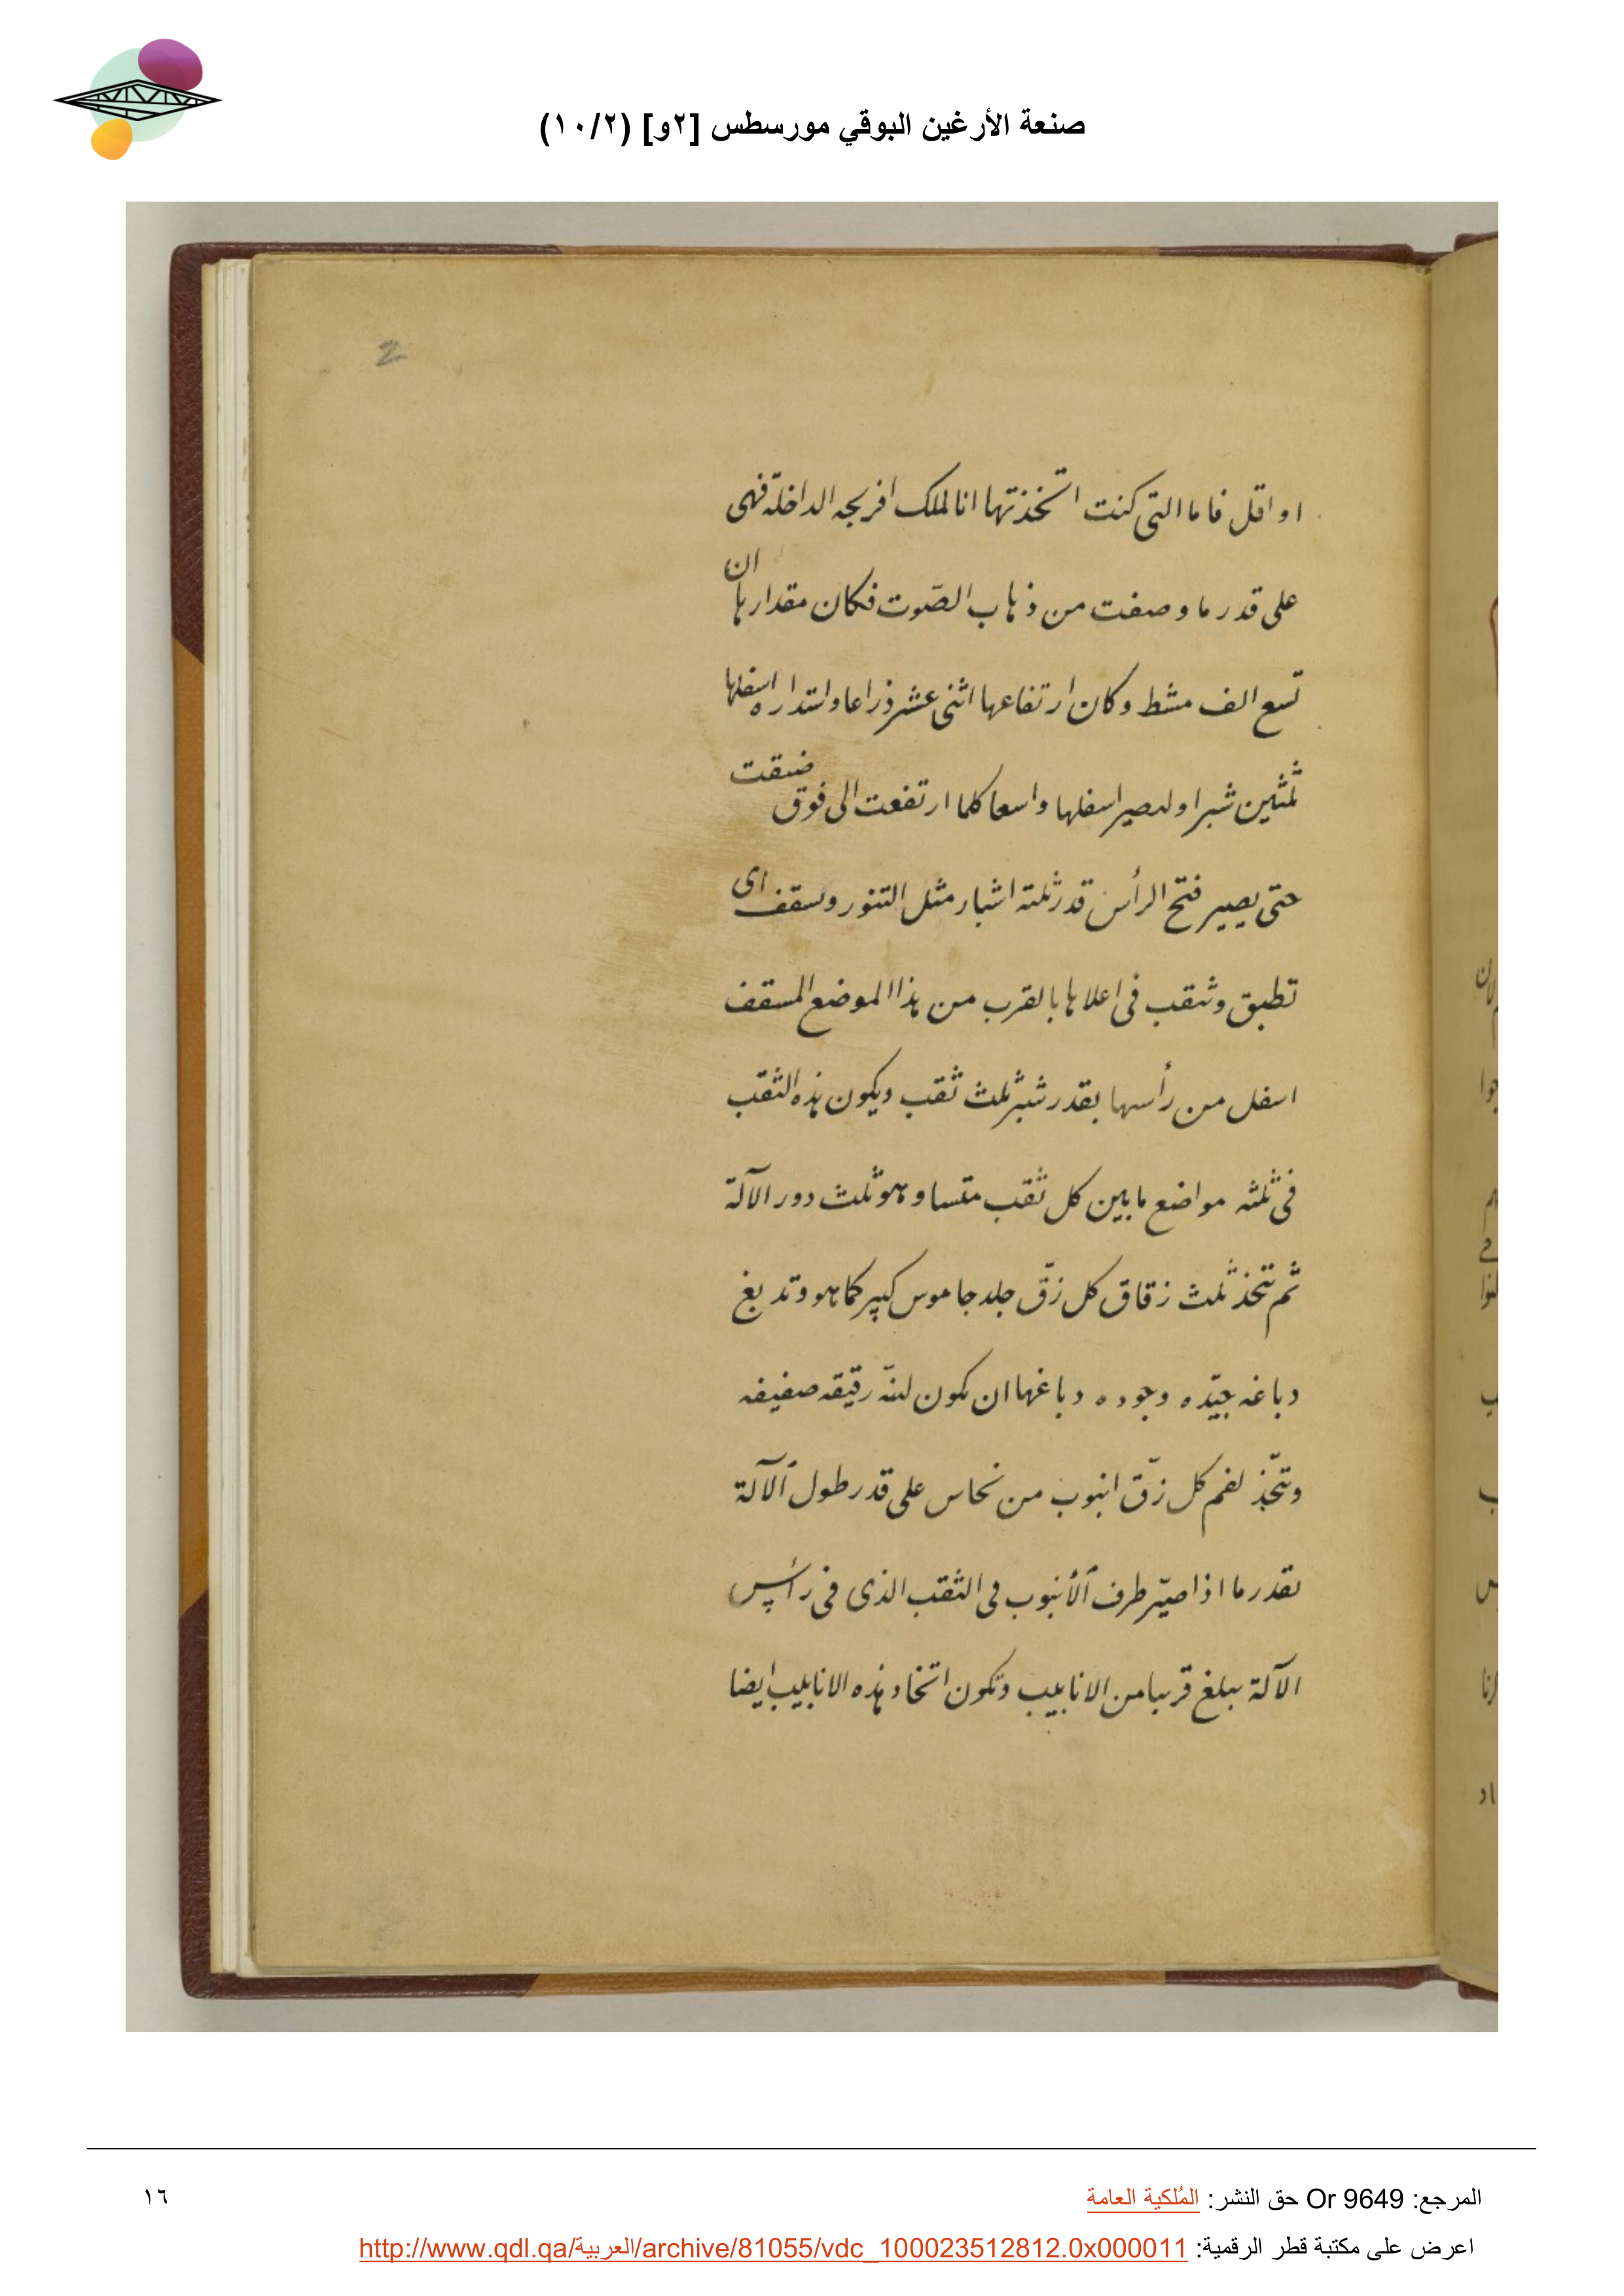 صنعة الأرغين البوقي مورسطس [٢و] (١٠/٢)
2
او اقل فاما التى كنت اتخذتها انا لملك افرنجه الداخلة فهى
على قدر ما وصفت من ذهاب الصّوت فكان مقدارها ان
تسع الف مشط وكان ارتفاعها اثنى عشر ذراعا واستداره اسفلها
ثلثين شبرا وليصير اسفلها واسعا كلما ارتفعت الى فوق ضيقت
حتى يصير فتح الرأس قدر ثلثة اشبار مثل التنور وسقف اى
تطبق وثقب فى اعلاها بالقرب من هذا الموضع المسقف
اسفل من رأسها بقدر شبر ثلث ثقب ويكون هذه الثقب
فى ثلثه مواضع مابين كل ثقب متساو وهو ثلث دور الآلة
ثم تتخذ ثلث زقاق كل زقّ جلد جاموس كبير كما هو وتدبغ
دباغه جيّده وجوده دباغها ان يكون لينّه رقيقه صفيفه
وتتّخذ لفم كل زقّ انبوب من نحاس على قدر طول ألآلة
بقدر ما اذا صيّر طرف ألأنبوب فى الثقب الذى فى رأس
الآلة يبلغ قريبا من الانابيب وتكون اتخاد هذه الانابيب ايضا
المرجع: Or 9649 حق النشر: المُلكية العامة
١٦
اعرض على مكتبة قطر الرقمية: http://www.qdl.qa/العربية/archive/81055/vdc_100023512812.0x000011